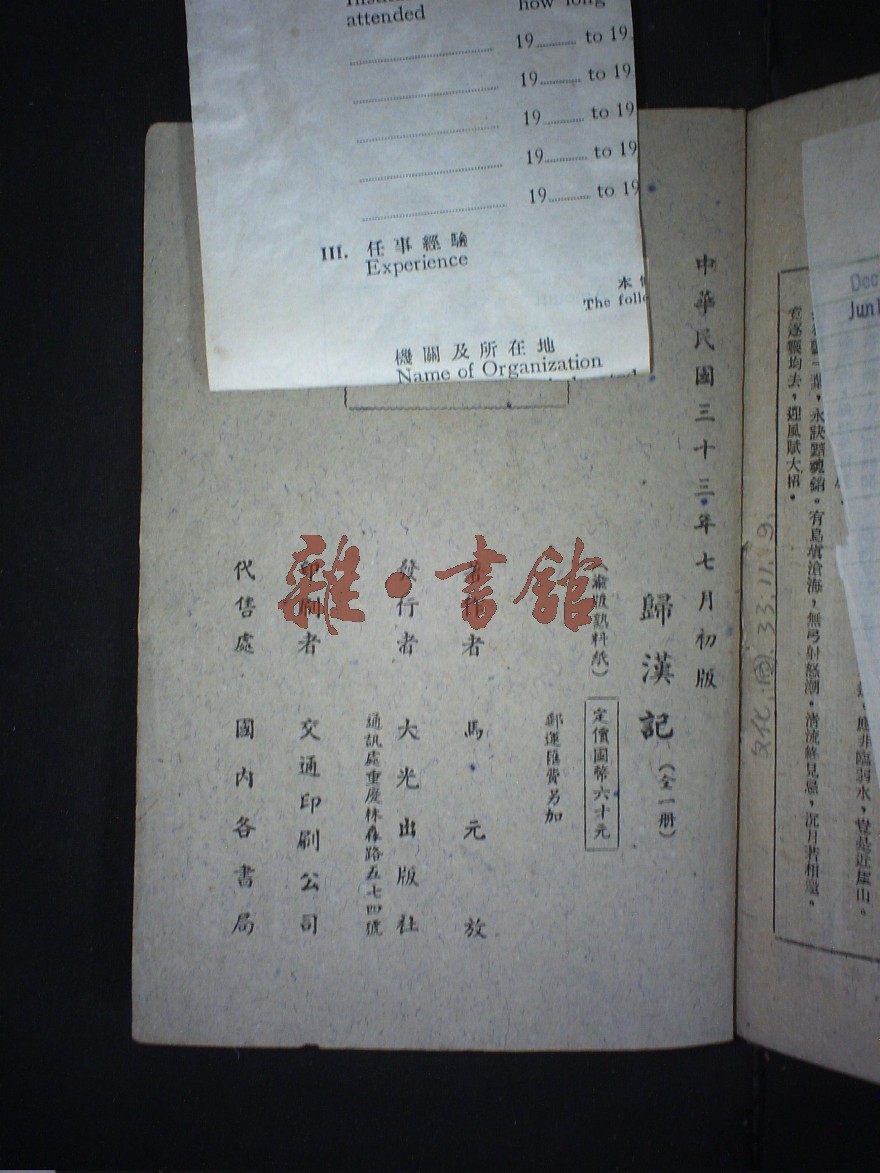 attended
how long
19 to 19
19 to 19
19 to 19
19 to 19
19 to 19
III. 任事經驗
Experience
The folle
機關及所在地
Name of Organization
中華民國三十三年七月初版
歸漢記（全一册）
（渝版熟料紙）
定價國幣六十元
郵運匯費另加
著作者 馬元放
發行者 大光出版社
通訊處重慶林森路五七四號
印刷者 交通印刷公司
代售處 國內各書局
雜·書館
Dec
Jun
文化. 33. 11. 9.
有鳥塡滄海，無弓射怒潮。清流終見忌，沉月若相邀。
竟逐飄均去，迎風賦大招。
應非臨弱水，豈是近崖山。